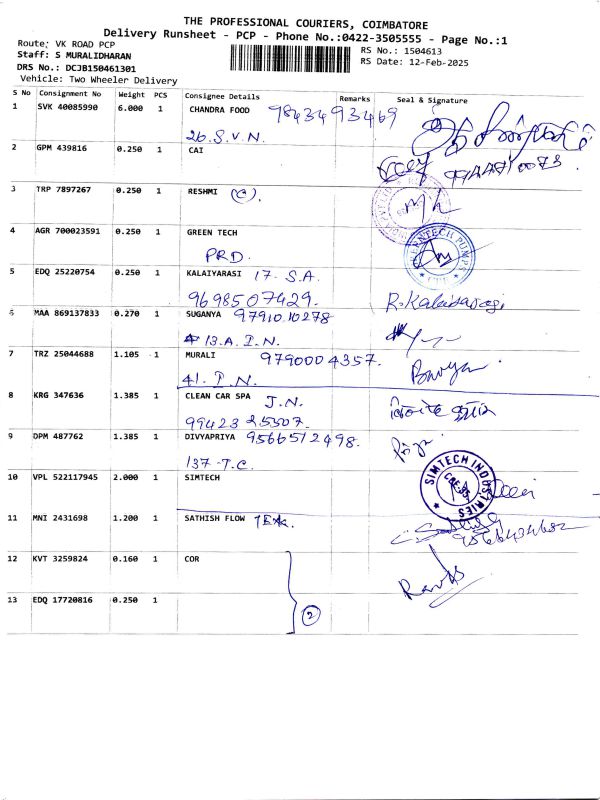 THE PROFESSIONAL COURIERS, COIMBATORE
Delivery Runsheet - PCP - Phone No.:0422-3505555 - Page No.:1
Route: VK ROAD PCP
Staff: S MURALIDHARAN
DRS No.: DCJB150461301
Vehicle: Two Wheeler Delivery
RS No.: 1504613
RS Date: 12-Feb-2025
S No Consignment No Weight PCS Consignee Details Remarks Seal & Signature
1 SVK 40085990 6.000 1 CHANDRA FOOD 9843493469
26. S.V.N.
2 GPM 439816 0.250 1 CAI
3 TRP 7897267 0.250 1 RESHMI
4 AGR 700023591 0.250 1 GREEN TECH
PRD.
5 EDQ 25220754 0.250 1 KALAIYARASI 17. S.A.
9698507429. R.Kalaiyarasi
6 MAA 869137833 0.270 1 SUGANYA 97910 10278
13. A. I. N.
7 TRZ 25044688 1.105 1 MURALI 9790004357.
41. I. N.
8 KRG 347636 1.385 1 CLEAN CAR SPA J.N.
99423 25307.
9 DPM 487762 1.385 1 DIVYAPRIYA 9566512498.
137-T.C.
10 VPL 522117945 2.000 1 SIMTECH
SIMTECH INDUSTRIES
CBE-35
11 MNI 2431698 1.200 1 SATHISH FLOW
9566434682
12 KVT 3259824 0.160 1 COR
13 EDQ 17720816 0.250 1
2